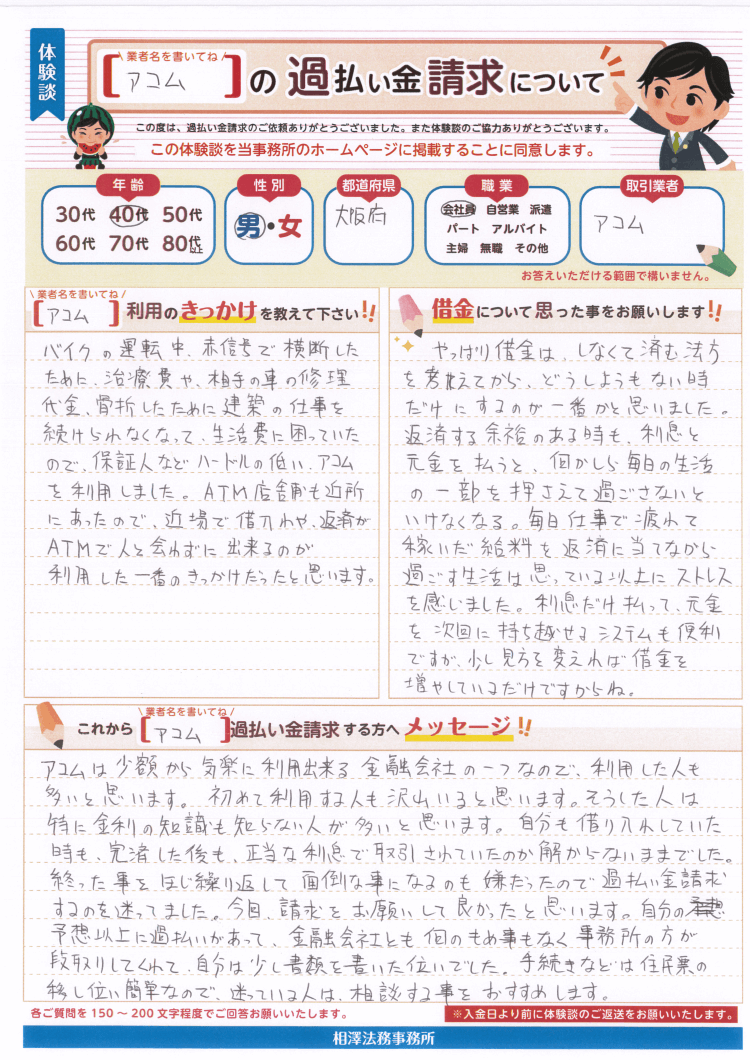 体験談
業者名を書いてね
[アコム]の過払い金請求について
この度は、過払い金請求のご依頼ありがとうございました。また体験談のご協力ありがとうございます。
この体験談を当事務所のホームページに掲載することに同意します。
年齢
30代 40代 50代
60代 70代 80代以上
性別
男・女
都道府県
大阪府
職業
会社員 自営業 派遣
パート アルバイト
主婦 無職 その他
取引業者
アコム
お答えいただける範囲で構いません。
業者名を書いてね
[アコム]利用のきっかけを教えて下さい!!
バイクの運転中、赤信号で横断した
ために、治療費や、相手の車の修理
代金、骨折したために建築の仕事を
続けられなくなって、生活費に困っていた
ので、保証人などハードルの低い、アコム
を利用しました。ATM店舗も近所
にあったので、近場で借入れや、返済が
ATMで人と会わずに出来るのが
利用した一番のきっかけだったと思います。
借金について思った事をお願いします!!
やっぱり借金は、しなくて済む法方
を考えてから、どうしようもない時
だけにするのが一番かと思いました。
返済する余裕のある時も、利息と
元金を払うと、何かしら毎日の生活
の一部を押さえて過ごさないと
いけなくなる。毎日仕事で疲れて
稼いだ給料を返済に当てながら
過ごす生活は思っている以上にストレス
を感いました。利息だけ払って、元金
を次回に持ち越せるシステムも便利
ですが、少し見方を変えれば借金を
増やしているだけですからね。
業者名を書いてね
これから[アコム]過払い金請求する方へメッセージ!!
アコムは少額から気楽に利用出来る金融会社の一つなので、利用した人も
多いと思います。初めて利用する人も沢山いると思います。そうした人は
特に金利の知識も知らない人が多いと思います。自分も借り入れしていた
時も、完済した後も、正当な利息で取引されていたのか解からないままでした。
終った事をほじ繰り返して面倒な事になるのも嫌だったので過払い金請求
するのを迷ってました。今回、請求をお願いして良かったと思います。自分の
予想以上に過払いがあって、金融会社とも何のもめ事もなく事務所の方が
段取りしてくれて、自分は少し書類を書いた位いでした。手続きなどは住民票の
移し位い簡単なので、迷っている人は、相談する事をおすすめします。
各ご質問を150〜200文字程度でご回答お願いいたします。
※入金日より前に体験談のご返送をお願いいたします。
相澤法務事務所